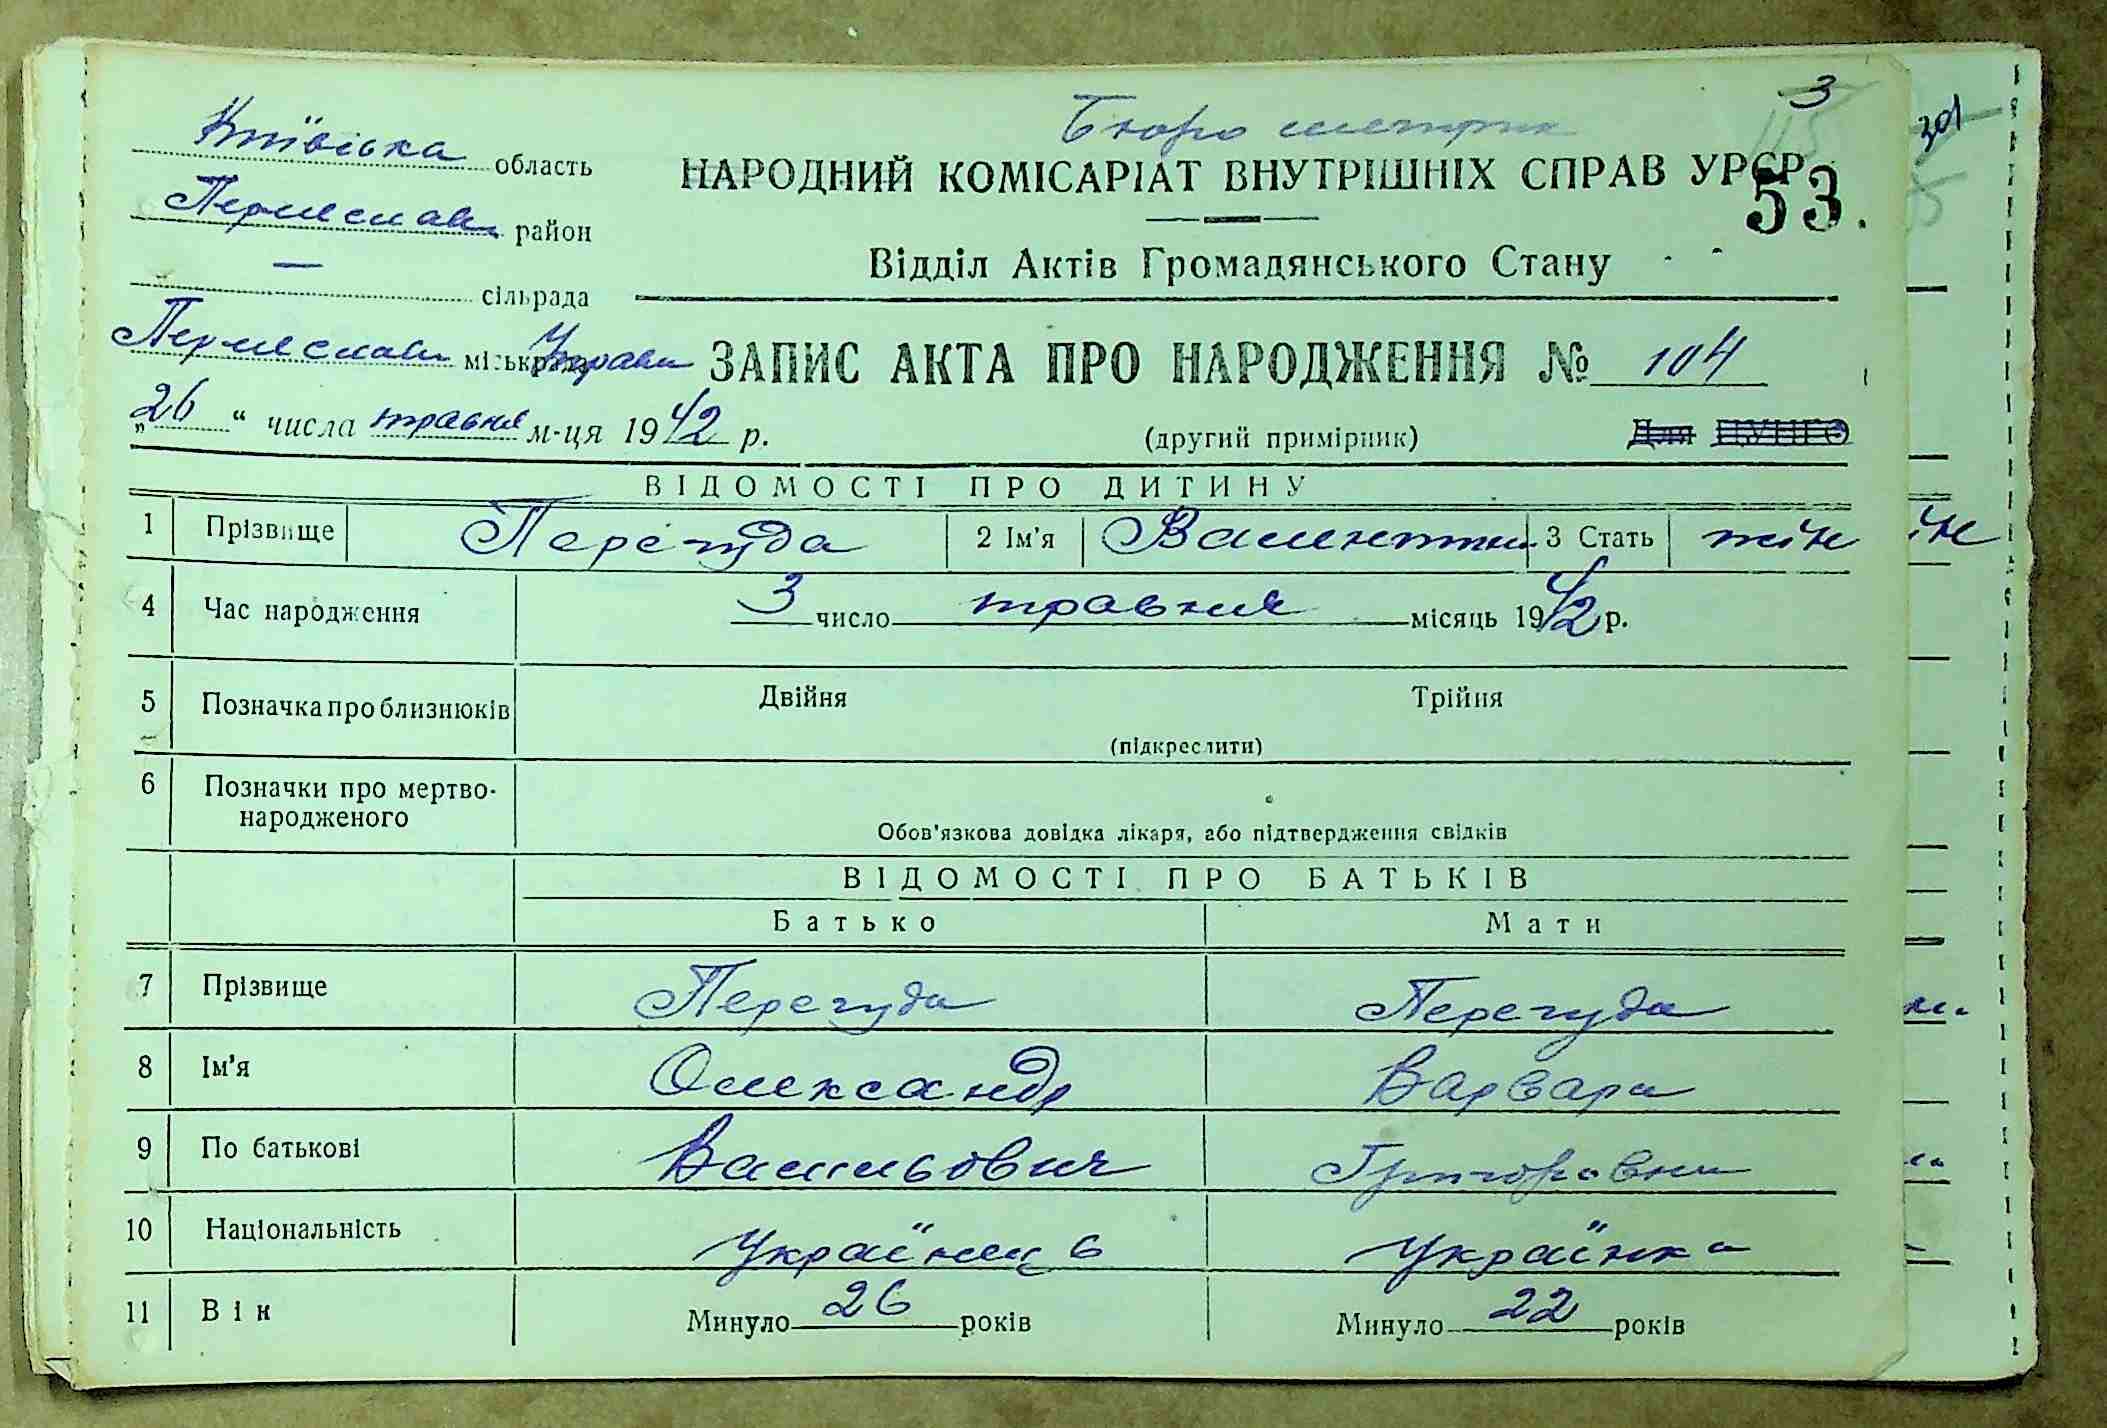 3
Київська область
Бюро метрик
НАРОДНИЙ КОМІСАРІАТ ВНУТРІШНІХ СПРАВ УРСР
53
301
Переяслав район
Відділ Актів Громадянського Стану
— сільрада
Переяслав міськрада Управи
ЗАПИС АКТА ПРО НАРОДЖЕННЯ № 104
„26“ числа травня м-ця 1942 р.
(другий примірник)
Для ЦУНГО
ВІДОМОСТІ ПРО ДИТИНУ
1 Прізвище Перегуда 2 Ім'я Валентин. 3 Стать жін
ін
4 Час народження 3 число травня місяць 1942 р.
5 Позначка про близнюків Двійня Трійня
(підкреслити)
6 Позначки про мертво-
народженого
Обов'язкова довідка лікаря, або підтвердження свідків
ВІДОМОСТІ ПРО БАТЬКІВ
Батько Мати
7 Прізвище Перегуда Перегуда
8 Ім'я Олександр Варвара
9 По батькові Васильович Григоровна
10 Національність Українець Українка
11 Вік Минуло 26 років Минуло 22 років